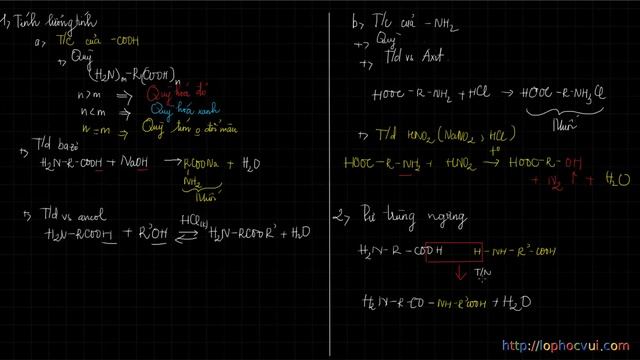 1, Tính lưỡng tính
a, T/c của -COOH
+, Quỳ
(H₂N)m-R(COOH)n
n>m ⇒ Quỳ hoá đỏ
n<m ⇒ Quỳ hoá xanh
n=m ⇒ Quỳ tím 0 đổi màu
+, T/d bazơ
H₂N-R-COOH + NaOH → RCOONa + H₂O
NH₂
Muối
+, T/d vs ancol
H₂N-RCOOH + R'OH ⇌ H₂N-RCOOR' + H₂O
b, T/c của -NH₂
+, Quỳ
+, T/d vs Axit
HOOC-R-NH₂ + HCl → HOOC-R-NH₃Cl
Muối
+, T/d HNO₂ (NaNO₂, HCl)
HOOC-R-NH₂ + HNO₂ → HOOC-R-OH
t°
+ N₂ ↑ + H₂O
2, Pư trùng ngưng
H₂N-R-COOH H-NH-R'-COOH
↓ T/N
H₂N-R-CO-NH-R'COOH + H₂O
http://lophocvui.com